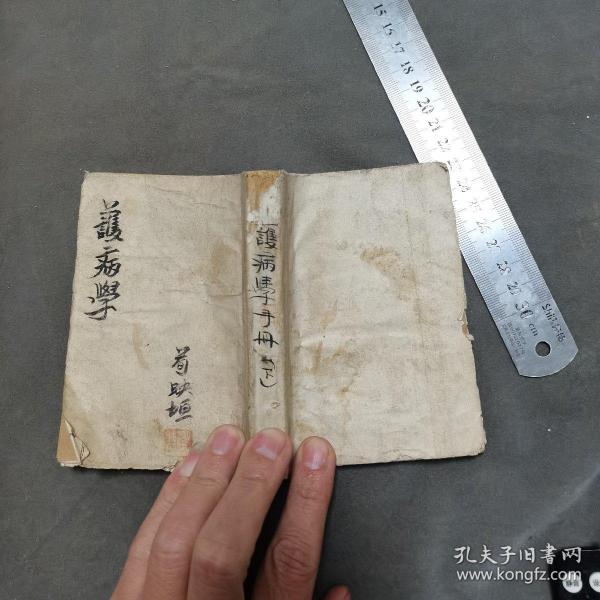 護病學
荀映垣
護病學手冊(下)
15 16 17 18 19 20 21 22 23 24 25 26 27 28 29 30 cm
孔夫子旧书网
www.kongfz.com